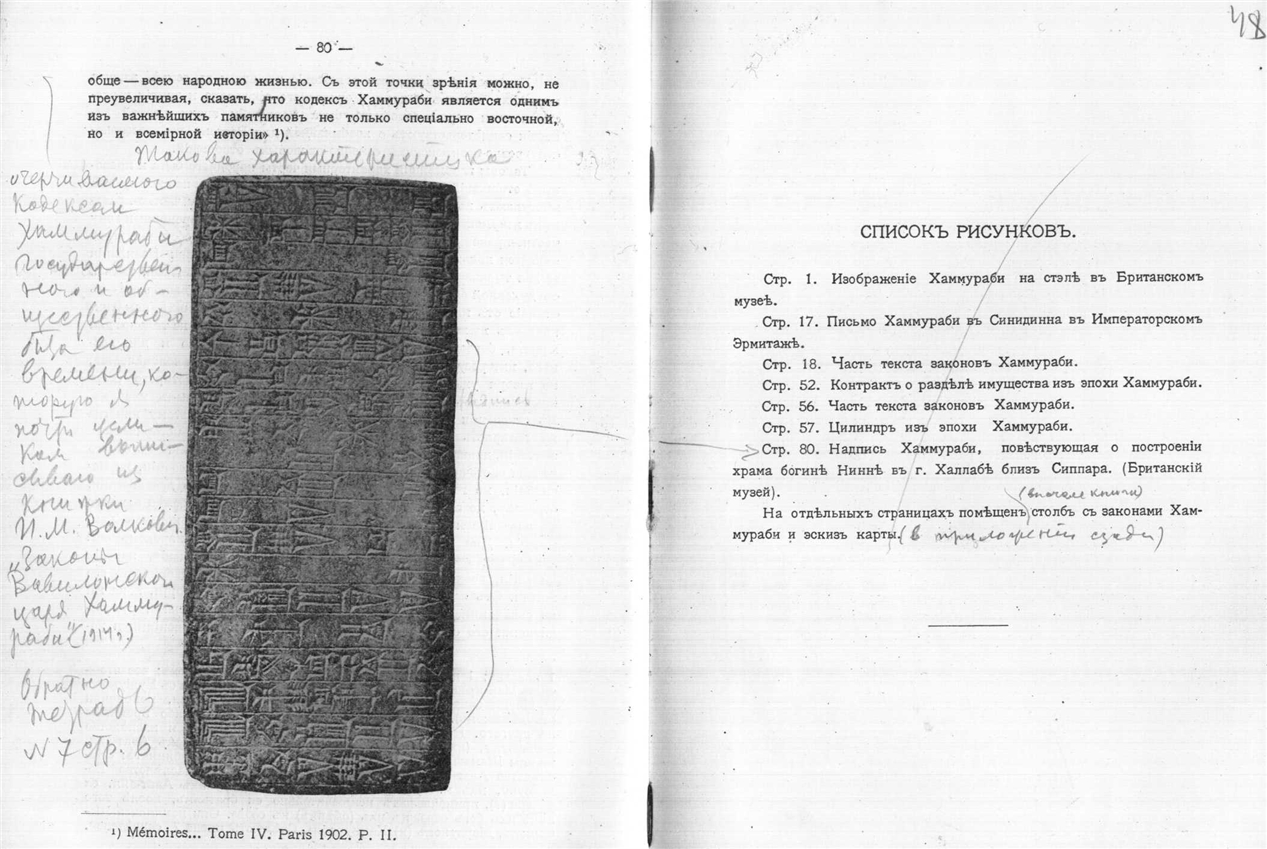 — 80 —
обще — всею народною жизнью. Съ этой точки зрѣнія можно, не
преувеличивая, сказать, что кодексъ Хаммураби является однимъ
изъ важнѣйшихъ памятниковъ не только спеціально восточной,
но и всемірной исторіи» ¹).
Такова характеристика
очерчиваемого
Кодексом
Хаммураби
государствен
ного и об-
щественного
быта его
времени, ко-
торую я
почти цели-
ком выпи-
сываю из
книжки
И. М. Волкова
„Законы
Вавилонского
царя Хамму-
раби" (1914 г)
Обратно
тетрадь
№ 7 стр. 6
надпись
¹) Mémoires... Tome IV. Paris 1902. P. II.
48
СПИСОКЪ РИСУНКОВЪ.
Стр. 1. Изображеніе Хаммураби на стэлѣ въ Британскомъ
музеѣ.
Стр. 17. Письмо Хаммураби въ Синидинна въ Императорскомъ
Эрмитажѣ.
Стр. 18. Часть текста законовъ Хаммураби.
Стр. 52. Контрактъ о раздѣлѣ имущества изъ эпохи Хаммураби.
Стр. 56. Часть текста законовъ Хаммураби.
Стр. 57. Цилиндръ изъ эпохи Хаммураби.
Стр. 80. Надпись Хаммураби, повѣствующая о построеніи
храма богинѣ Ниннѣ въ г. Халлабѣ близъ Сиппара. (Британскій
музей).
(вначале книги)
На отдѣльныхъ страницахъ помѣщенъ столбъ съ законами Хам-
мураби и эскизъ карты. (в приложении сзади)